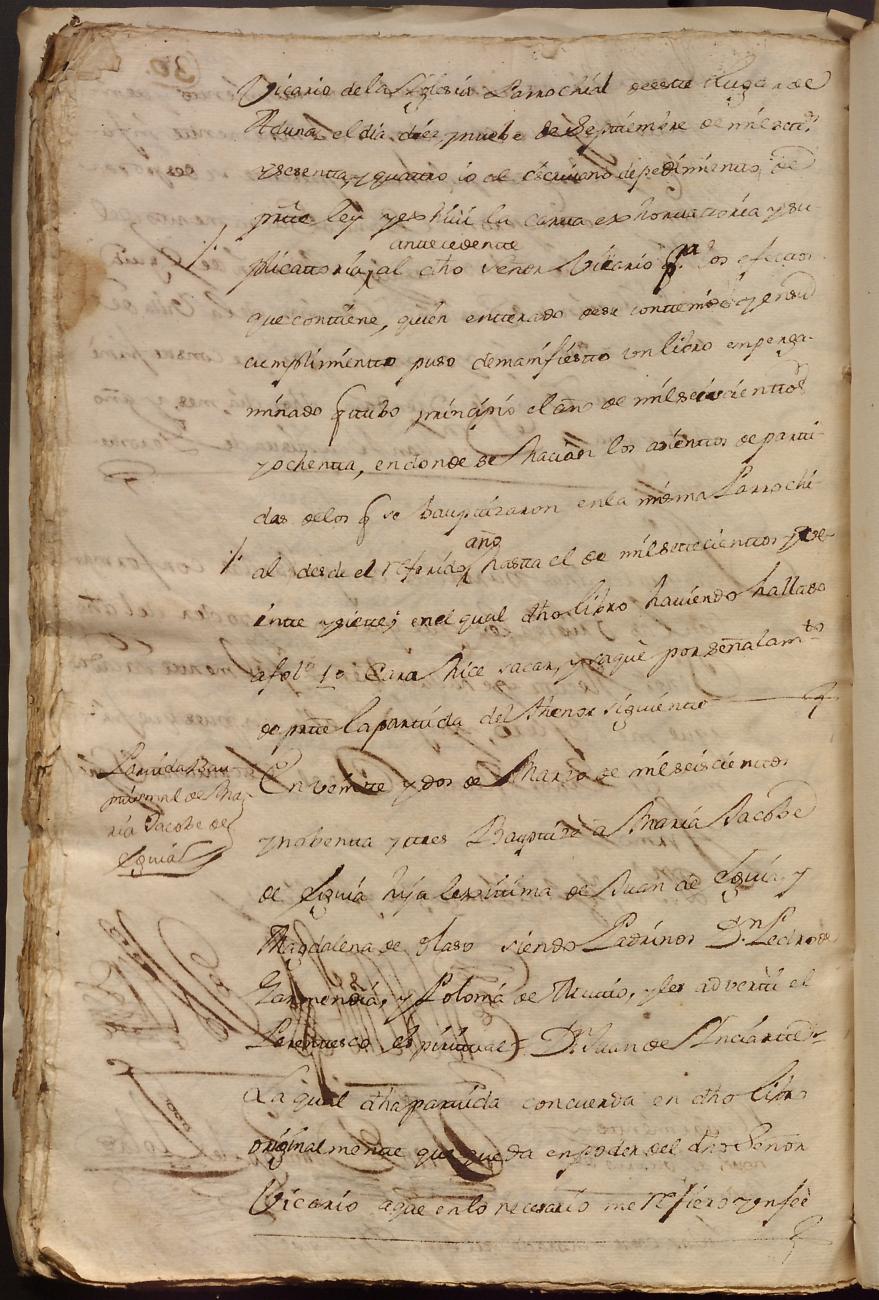 30
Vicario de la Yglesia Parrochial de este Lugar de
Aduna, el dia diez y nuebe de Septiembre de mil setts
y sesenta, y quattro io el escrivano de pedimiento de
partte ley y exhivi la cartta exhortatoria y su-
plicattoria, antecedente al dho señor Vicario pra los efectos
que contiene, quien entterado de su contenido, y en su
cumplimientto puso de manifiestto un libro en perga-
minado q tubo principio el año de mil seiscienttos
y ochenta, en donde se hacian los asienttos de parti-
das de los q se bauptizaron en la misma Parrochi-
al desde el referido año hastta el de mil settecienttos y ve-
inte y siette; en el qual dho libro haviendo hallado
a folo 10 Cara hice sacar, y saque por señalamto
de partte la partida del thenor siguiente
Partida Bau-
ptismal de Ma-
ria Jacobe de
Eguia
En veintte y dos de Marzo de mil seiscienttos
y nobentta y tres Bauptizé a Maria Jacobe
de Eguia hija lexittima de Juan de Eguia y
Magdalena de Olaso siendo Padrinos Dn Pedro de
Garmendia, y Paloma de Muttio, y les adverti el
Parenttesco espiritual = Dn Juan de Inciartte =
La qual dha partida concuerda en dho libro
original mente que queda en poder del dho Señor
Vicario a que en lo necesario me refiero y en feé